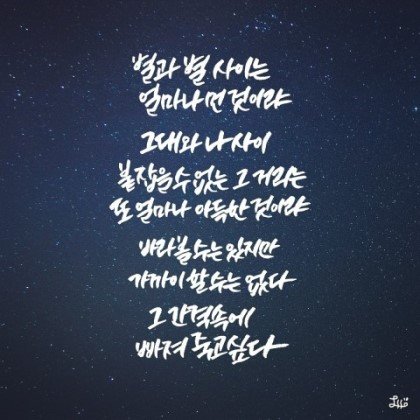 별과 별 사이는
얼마나 먼 것이랴
그대와 나 사이
붙잡을 수 없는 그 거리는
또 얼마나 아득한 것이랴
바라볼 수는 있지만
가까이 할 수는 없다
그 간격 속에
빠져 죽고 싶다